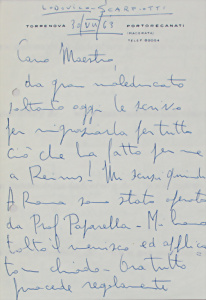 LUDOVICO SCARFIOTTI
TORRENOVA 30/VII/63 PORTORECANATI
(MACERATA)
TELEF.
Caro Maestro,
da gran maleducato
soltanto oggi le scrivo
per ringraziarla per tutto
ciò che ha fatto per me
a Reims! Mi scusi quindi
A Roma sono stato operato
da Prof Paparella - M- hanno
tolto il menisco ed
un chiodo - Ora tutto
procede regolarmente